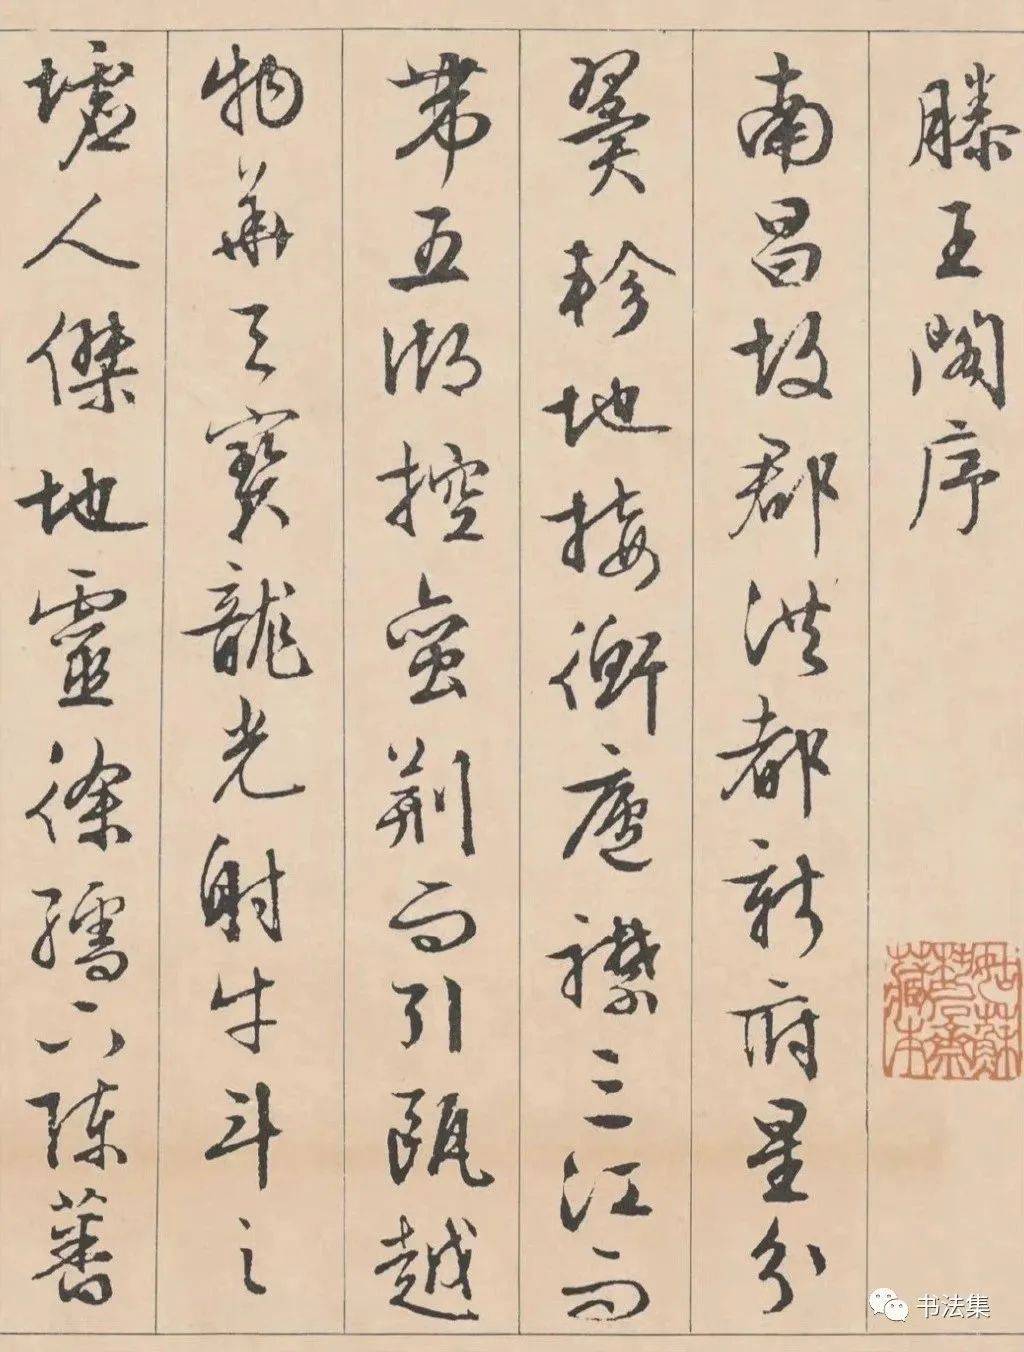 滕王閣序
南昌故郡洪都新府星分
翼軫地接衡廬襟三江而
帶五湖控蠻荆而引甌越
物華天寶龍光射牛斗之
墟人傑地靈徐孺下陳蕃
書法集